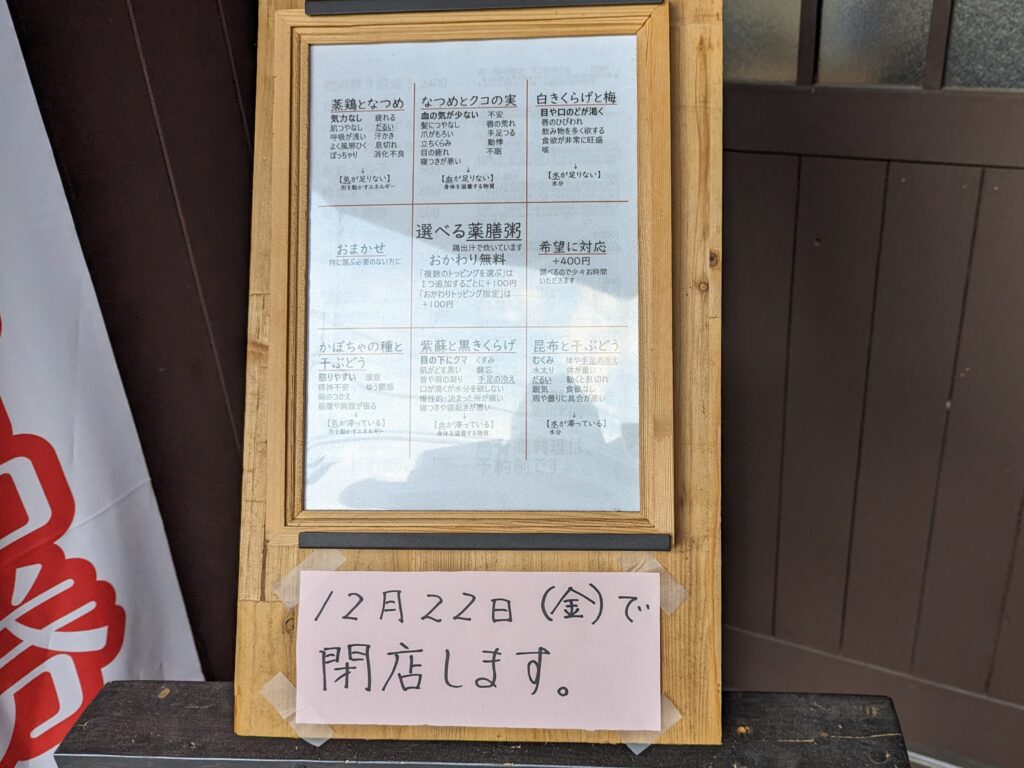 蒸鶏となつめ
気力なし 疲れる
肌つやなし だるい
呼吸が浅い 汗かき
よく風邪ひく 息切れ
ぽっちゃり 消化不良
↓
【気が足りない】
形を動かすエネルギー
なつめとクコの実
血の気が少ない 不安
髪につやなし 唇の荒れ
爪がもろい 手足つる
立ちくらみ 動悸
目の疲れ 不眠
寝つきが悪い
↓
【血が足りない】
身体を滋養する物質
白きくらげと梅
目や口のどが渇く
唇のひびわれ
飲み物を多く欲する
食欲が非常に旺盛
咳
↓
【水が足りない】
水分
おまかせ
特に選ぶ必要のない方に
選べる薬膳粥
鶏出汁で炊いています
おかわり無料
「複数のトッピングを選ぶ」は
1つ追加するごとに+100円
「おかわりトッピング指定」は
+100円
希望に対応
+400円
調べるので少々お時間
いただきます
かぼちゃの種と
干ぶどう
怒りやすい 溜息
精神不安 ゆう鬱感
胸のつかえ
脇腹や胸腹が張る
↓
【気が滞っている】
形を動かすエネルギー
紫蘇と黒きくらげ
目の下にクマ くすみ
肌がどす黒い 健忘
首や肩の凝り 手足の冷え
口が渇くが水分を欲しない
慢性的・決まった所が痛い
寝つきや寝起きが悪い
↓
【血が滞っている】
身体を滋養する物質
昆布と干ぶどう
むくみ 体や手足の冷え
水太り 体が重い
だるい 動くと息切れ
眠気 食欲なし
雨や曇りに具合が悪い
↓
【水が滞っている】
水分
予約制です。
12月22日(金)で
閉店します。